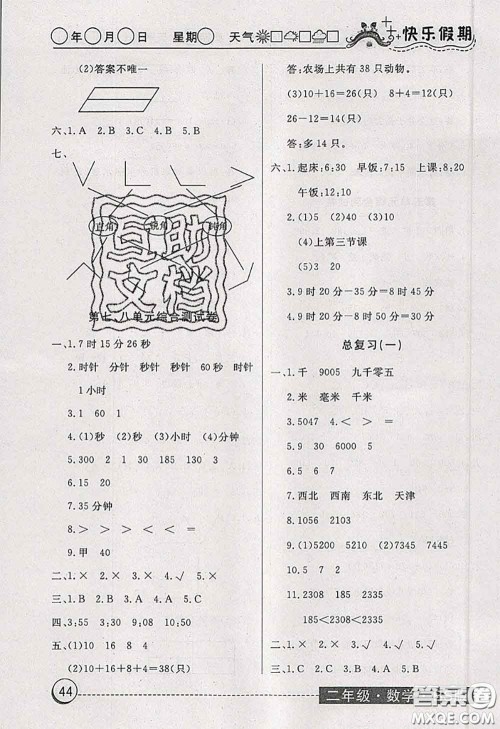 年 月 日 星期 天气
快乐假期
(2)答案不唯一
六、1.A 2.B 3.C 4.A 5.B
七、
直角 锐角 钝角
互助
文档
第七、八单元综合测试卷
一、1.7时15分26秒
2.时针 分针 秒针 秒针 1分钟 分针
1小时
3.1 60 1
4.(1)秒 (2)秒 (3)小时 (4)分钟
5.300 2 1 185 130 3
6.970 9
7.35分钟
8.> > < > < <
9.甲 40
二、1.× 2.× 3.× 4.√ 5.×
三、1.C 2.B 3.C 4.C 5.B
四、3:55 3:00 9:30 7:05
五、(1)10 16 8 4
(2)10+16+8+4=38(只)
答:农场上共有38只动物。
(3)10+16=26(只) 8+4=12(只)
26-12=14(只)
答:多14只。
六、1.起床:6:30 早饭:7:15 上课:8:20
午饭:12:10
2.(1)5 (2)40 (3)10
(4)上第三节课
(5)3 20
3.9时20分-35分=8时45分
4.9时20分-30分=8时50分
总复习(一)
一、1.千 9005 九千零五
2.米 毫米 千米
3.5047 4.< > < =
5.9 30 6000 5
6.7 5
7.西北 西南 东北 天津
8.1052 2103
9.(1)5200 5210
(2)9000 9010
10.8 1
11.185 2308 2318 2335
185<2308<2318<2335
二、1.× 2.× 3.√ 4.× 5.√
三、1.A 2.C 3.B 4.C 5.A
44
二年级·数学
答案圈
MXQE.COM